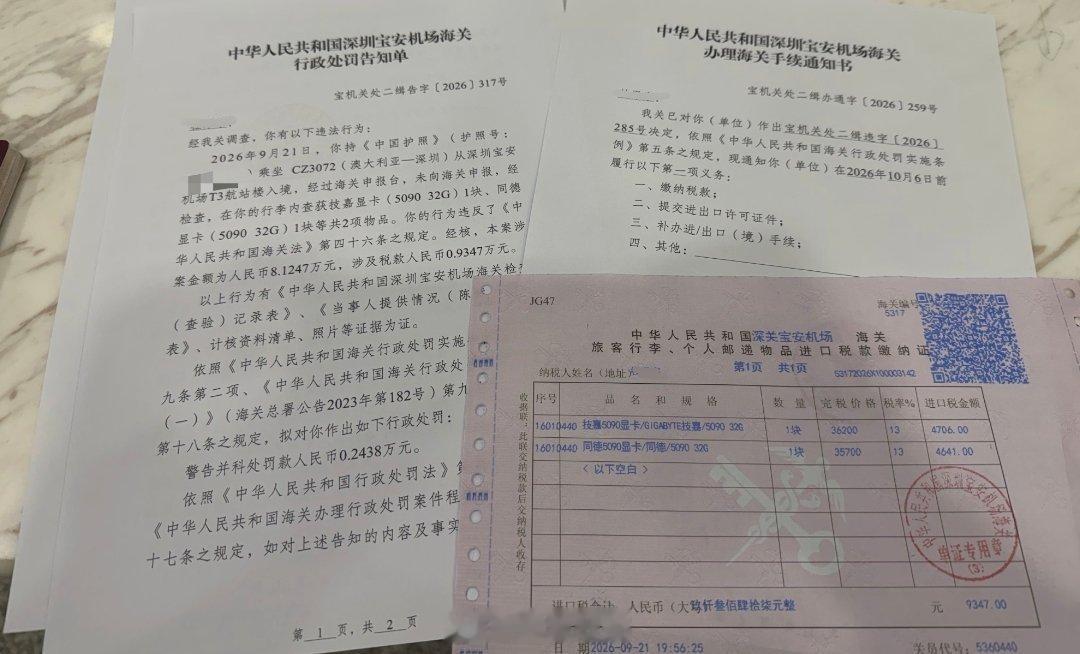 中华人民共和国深圳宝安机场海关
行政处罚告知单
宝机关处二缉告字〔2026〕317号
经我关调查，你有以下违法行为：
2026年9月21日，你持《中国护照》（护照号：
）乘坐 CZ3072（澳大利亚—深圳）从深圳宝安
机场T3航站楼入境，经过海关申报台，未向海关申报，经
检查，在你的行李内查获技嘉显卡（5090 32G）1块、同德
显卡（5090 32G）1块等共2项物品。你的行为违反了《中
华人民共和国海关法》第四十六条之规定。经核，本案涉
案金额为人民币8.1247万元，涉及税款人民币0.9347万元。
以上行为有《中华人民共和国深圳宝安机场海关检
（查验）记录表》、《当事人提供情况（陈
表》、计核资料清单、照片等证据为证。
依照《中华人民共和国海关行政处罚实施
九条第二项、《中华人民共和国海关行政处
（一）》（海关总署公告2023年第182号）第九
第十八条之规定，拟对你作出如下行政处罚：
警告并科处罚款人民币0.2438万元。
依照《中华人民共和国行政处罚法》第
《中华人民共和国海关办理行政处罚案件程
十七条之规定，如对上述告知的内容及事实
第 1 页，共 2 页
中华人民共和国深圳宝安机场海关
办理海关手续通知书
宝机关处二缉办通字〔2026〕259号
我关已对你（单位）作出宝机关处二缉违字〔2026〕
285号决定，依照《中华人民共和国海关行政处罚实施条
例》第五条之规定，现通知你（单位）在2026年10月6日前
履行以下第二项义务：
一、缴纳税款；
二、提交进出口许可证件；
三、补办进/出口（境）手续；
四、其他：
JG47
海关编号
5317
中华人民共和国深关宝安机场 海关
旅客行李、个人邮递物品进口税款缴纳证
纳税人姓名（地址
第1页 共1页
53172026X100003142
收据联：此联交纳税款后交纳税人收存
序号 品名和规格 数量 完税价格 税率% 进口税金额
16010440 技嘉5090显卡/GIGABYTE技嘉/5090 32G 1块 36200 13 4706.00
16010440 同德5090显卡/同德/5090 32G 1块 35700 13 4641.00
<以下空白>
进口税合计 人民币（大 玖仟叁佰肆拾柒元整 元 9347.00
日 期2026-09-21 19:56:25
关员代号：5360440
(3)